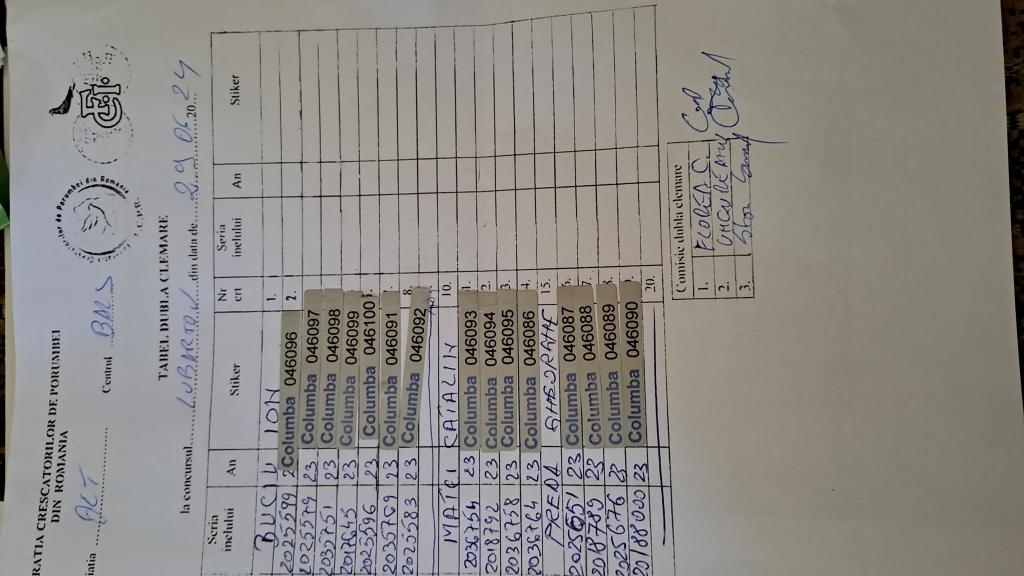 RATIA CRESCATORILOR DE PORUMBEI
DIN ROMANIA
iatia OLT Centrul BALS
TABEL DUBLA CLEMARE
la concursul LUBARTOV din data de 29 06 2024
Seria inelului An Stiker Nr crt Seria inelului An Stiker
BUCIU ION 1.
2025599 2 Columba 046096 2.
2025579 23 Columba 046097
2035751 23 Columba 046098
2018645 23 Columba 046099
2023596 23 Columba 046100
2035769 23 Columba 046091
2025583 23 Columba 046092 8.
MATEI CATALIN 10.
2036754 23 Columba 046093
2018792 23 Columba 046094 2.
2036758 23 Columba 046095 3.
2036764 23 Columba 046086 4.
GHEORGHE 15.
2025651 23 Columba 046087 6.
2018789 23 Columba 046088 7.
2025676 23 Columba 046089
2018800 23 Columba 046090
20.
Comisie dubla clemare
1. FLOREA C.
2.
3.